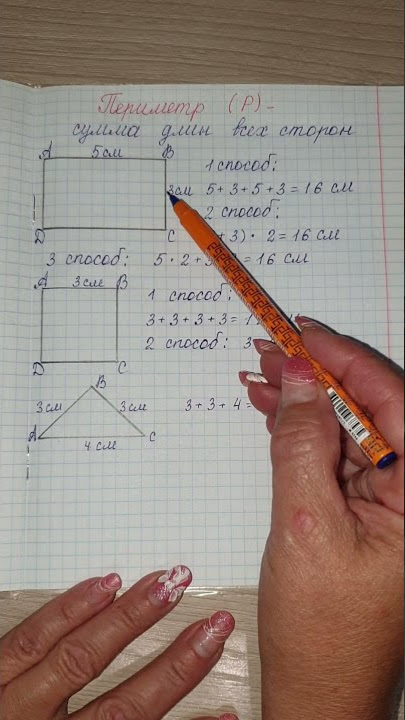 Периметр (Р) -
сумма длин всех сторон
А В
5 см
3 см
D С
1 способ:
5 + 3 + 5 + 3 = 16 см
2 способ:
+ 3) · 2 = 16 см
3 способ: 5 · 2 + 3 = 16 см
А В
3 см
D С
1 способ:
3 + 3 + 3 + 3 =
2 способ: 3
В
3 см 3 см
А С
4 см
3 + 3 + 4 =